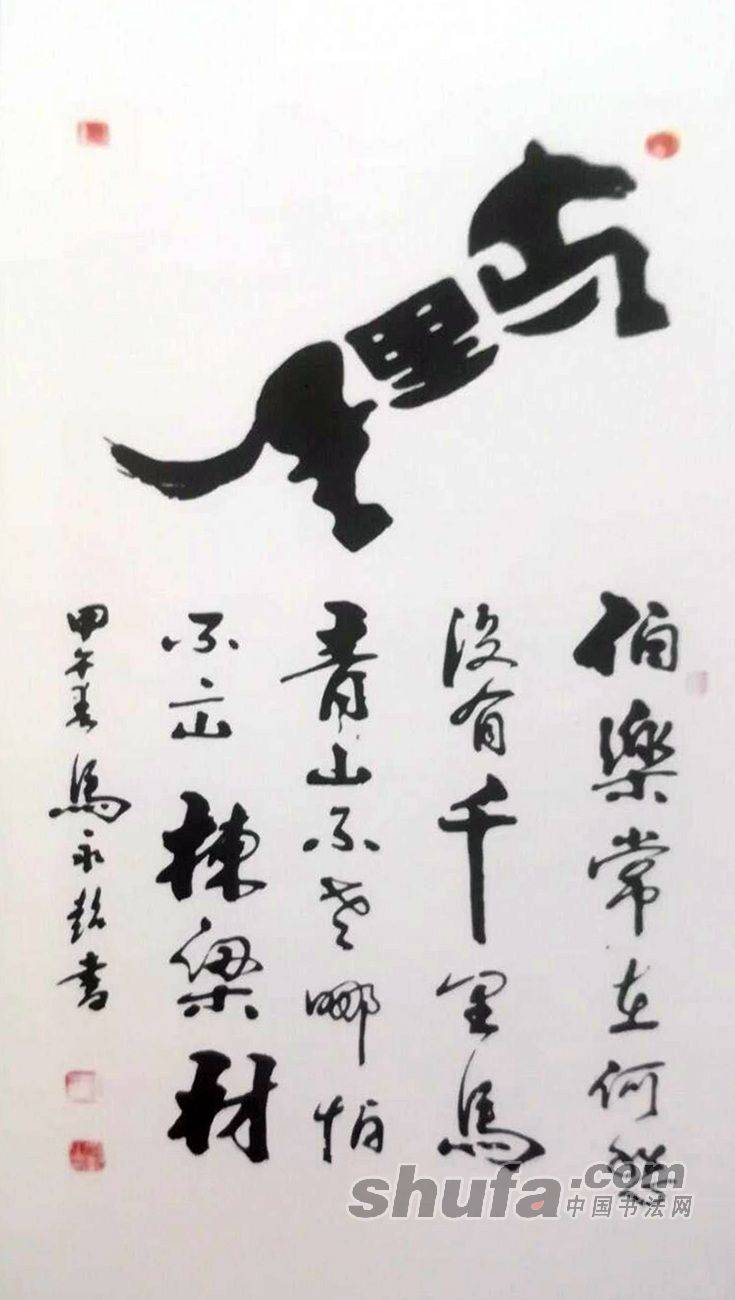 伯樂常在何愁
沒有千里馬
青山不老哪怕
不出棟梁材
甲午春馬永 書
shufa.com
中国书法网